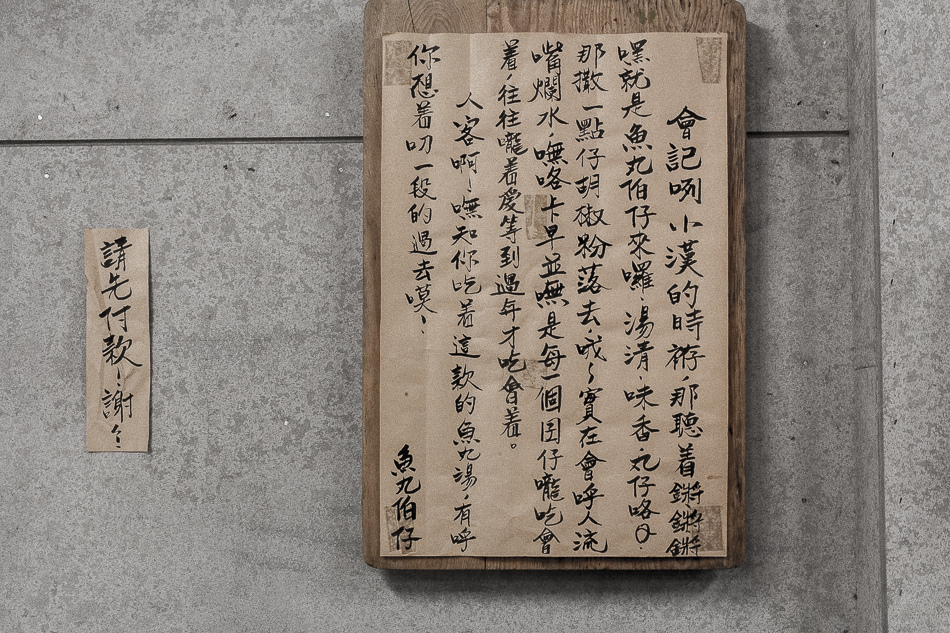 會記咧小漢的時袸，那聽着鏘鏘鏘
嘿就是魚丸伯仔來囉、湯清、味香、丸仔咯Q.
那撒一點仔胡椒粉落去，哦～實在會呼人流
嘴爛水，嘸咯卡早並嘸是每一個囝仔嚨吃會
着，往往嚨着愛等到過年才吃會着。
人客啊！嘸知你吃着這款的魚丸湯，有呼
你想着叨一段的過去嘆！
魚丸伯仔
請先付款！謝々！